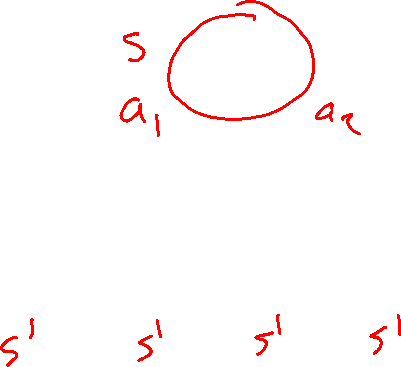 s
a₁ a₂
s' s' s' s'